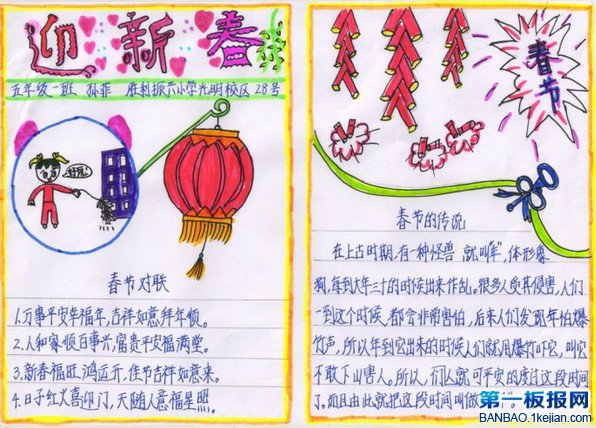 迎新春
五年级一班 孙菲 胜利振兴小学光明校区 28号
好玩!
春节对联
1.万事平安幸福年,吉祥如意拜年顺。
2.人和家顺百事兴,富贵平安福满堂。
3.新春福旺鸿运开,佳节吉祥如意来。
4.日子红火喜迎门,天随人意福星照。
春节
春节的传说
在上古时期,有一种怪兽 就叫"年",体形
狗,每到大年三十的时候出来作乱。很多人受其侵害,人们
一到这个时候,都会非常害怕,后来人们发现年怕爆
竹声,所以年到它出来的时候人们就用爆竹吓它,叫它
不敢下山害人。所以,们人就可平安的度过这段时间
了。而且由此就把这段时间叫做
第一板报网
BANBAO.1kejian.com